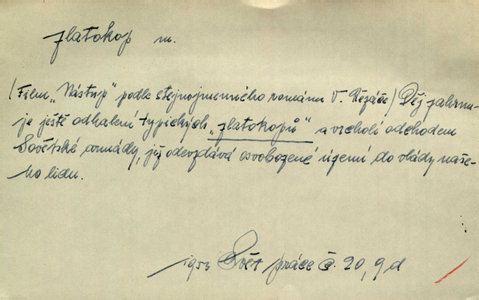 zlatokop m.
(Film „Nástup" podle stejnojmenného románu V. Řezáče) Děj zahrnu-
je ještě odhalení typických „zlatokopů" a vrcholí odchodem
Sovětské armády, jíž odevzdává osvobozené území do vlády naše-
ho lidu.
1952 Svět práce č. 20, 9 d